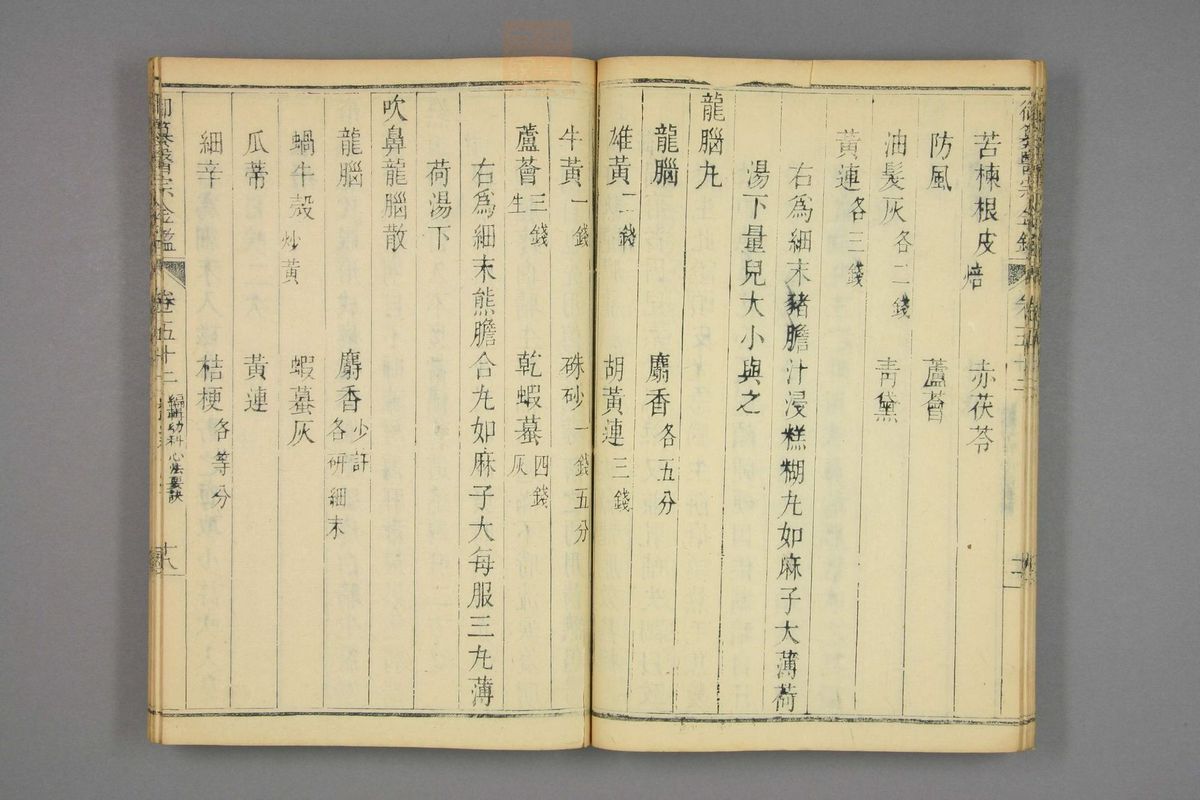 苦楝根皮焙 赤茯苓
防風 蘆薈
油髮灰各二錢 青黛
黃連各三錢
右爲細末豬膽汁浸糕糊丸如麻子大薄荷
湯下量兒大小與之
龍腦丸
龍腦 麝香各五分
雄黃二錢 胡黃連三錢
牛黃一錢 硃砂一錢五分
蘆薈三錢生 乾蝦蟇四錢灰
右爲細末熊膽合丸如麻子大每服三丸薄
荷湯下
吹鼻龍腦散
龍腦 麝香少許各研細末
蝸牛殼炒黃 蝦蟇灰
瓜蒂 黃連
細辛 桔梗各等分
御纂醫宗金鑑 卷五十二 編輯幼科心法要訣 十八